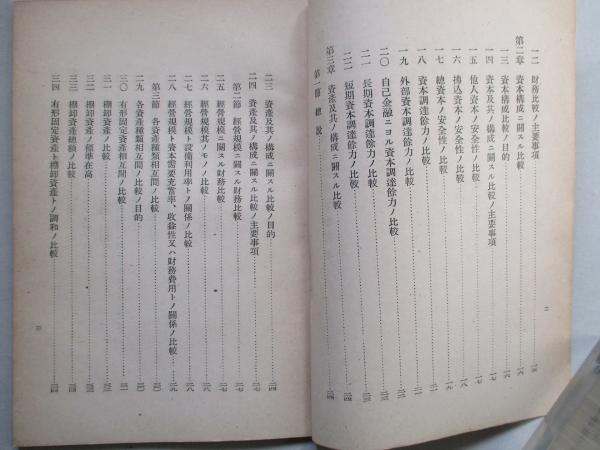 一二 財務比較ノ主要事項
第二章 資本構成ニ關スル比較
一三 資本構成比較ノ目的
一四 資本及其ノ構成ニ關スル比較ノ主要事項
一五 他人資本ノ安全性ノ比較
一六 拂込資本ノ安全性ノ比較
一七 總資本ノ安全性ノ比較
一八 資本調達餘力ノ比較
一九 外部資本調達餘力ノ比較
二〇 自己金融ニヨル資本調達餘力ノ比較
二一 長期資本調達餘力ノ比較
二二 短期資本調達餘力ノ比較
第三章 資產及其ノ構成ニ關スル比較
第一節 總說
二
二三 資產及其ノ構成ニ關スル比較ノ目的
二四 資產及其ノ構成ニ關スル比較ノ主要事項
第二節 經營規模ニ關スル財務比較
二五 經營規模ニ關スル財務比較
二六 經營規模其ノモノノ比較
二七 經營規模ト設備利用率トノ關係ノ比較
二八 經營規模ト資本需要充當率、收益性又ハ財務費用トノ關係ノ比較
第三節 各資產種類相互間ノ比較
二九 各資產種類相互間ノ比較ノ目的
三〇 有形固定資產相互間ノ比較
三一 棚卸資產ノ比較
三二 棚卸資產ノ標準在高
三三 棚卸資產總額ノ比較
三四 有形固定資產ト棚卸資產トノ調和ノ比較
三